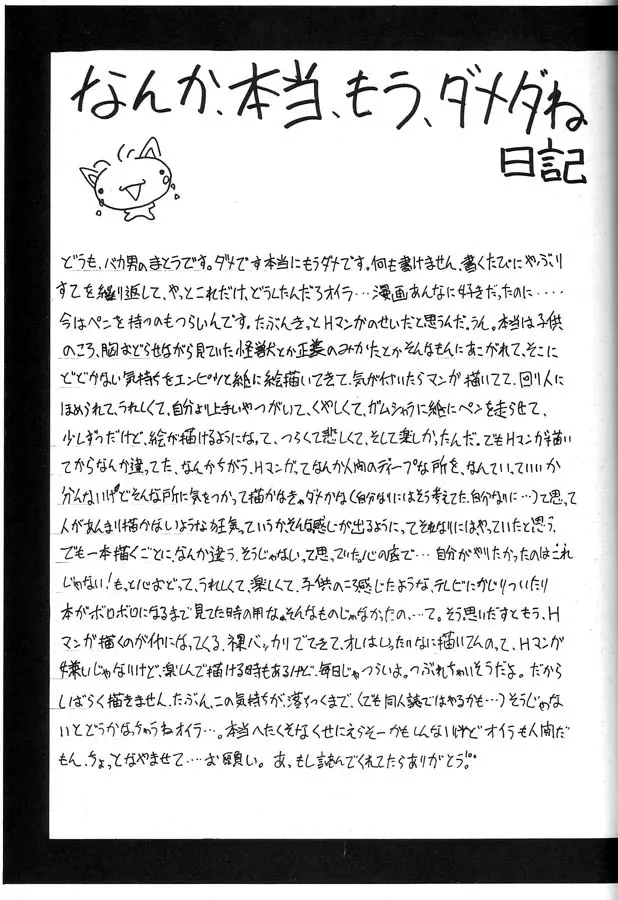 なんか、本当、もう、ダメダね
日記
どうも、バカ男のまとうです。ダメです本当にもうダメです。何も書けません、書くたびにやぶり
すてを繰り返して、やっとこれだけ、どうしたんだろオイラ…漫画あんなに好きだったのに‥‥
今はペンを持つのもつらいんです。たぶんきっとHマンガのせいだと思うんだ。うん。本当は子供
のころ、胸おどらせながら見ていた怪獣とか正義のみかたとかそんなもんにあこがれて、そこに
とどかない気持ちをエンピツと紙に絵描いてきて、気が付いたらマンガ描いてて、回り人に
ほめられて、うれしくて、自分より上手いやつがいて、くやしくて、ガムシャラに紙にペンを走らせて、
少しずつだけど、絵が描けるようになって、つらくて悲しくて、そして楽しかったんだ。でもHマンガ描い
てからなんか違ってた、なんかちがう、Hマンガってなんか人間のディープな所を、なんていっていいか
分んないけどそんな所に気をつかって描かなきゃダメかな(自分なりにはそう考えてた、自分なりに…)て思って
人があんまり描かないような狂気っていうか、そんな感じが出るようにってそれなりにはやっていたと思う、
でも一本描くごとに、なんか違う、そうじゃないって思っていた。心の底で…自分がやりたかったのはこれ
じゃない!もっと心おどって、うれしくて、楽しくて、子供のころ感じたような、テレビにかじりついたり
本がボロボロになるまで見てた時の用な。そんなものじゃなかったの、…て。そう思いだすともう、H
マンガ描くのが仂になってくる、裸バッカリでてきて、オレはいったいなに描いてんのって、Hマンガ
嫌いじゃないけど、楽しんで描ける時もあるけど、毎日じゃつらいよ。つぶれちゃいそうだよ。だから
しばらく描きません、たぶん、この気持ちが、落ちつくまで、(でも同人誌ではやるかも…)そうじゃな
いとどうかなっちゃうねオイラ…。本当へたくそなくせにえらそーかもしんないけどオイラも人間だ
もん、ちょっとなやませて…お願い。あ、もし読んでくれてたらありがとう!。